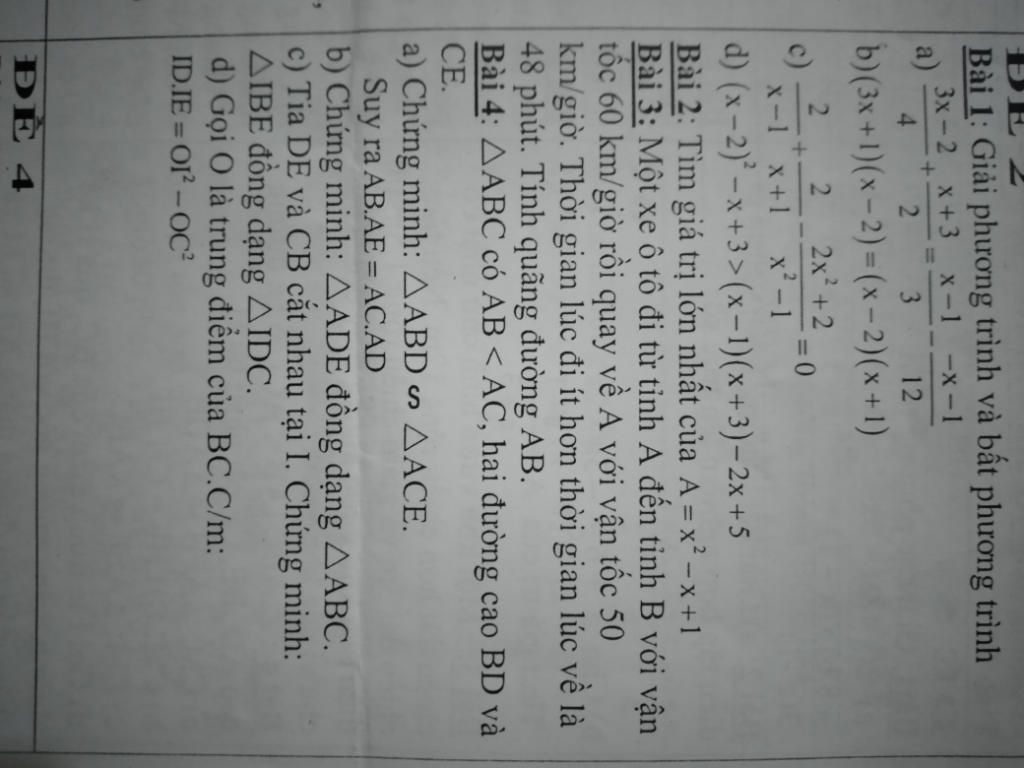 ĐỀ 2
Bài 1: Giải phương trình và bất phương trình
a) (3x − 2)/4 + (x + 3)/2 = (x − 1)/3 − (−x − 1)/12
b) (3x + 1)(x − 2) = (x − 2)(x + 1)
c) 2/(x − 1) + 2/(x + 1) − (2x² + 2)/(x² − 1) = 0
d) (x − 2)² − x + 3 > (x − 1)(x + 3) − 2x + 5
Bài 2: Tìm giá trị lớn nhất của A = x² − x + 1
Bài 3: Một xe ô tô đi từ tỉnh A đến tỉnh B với vận
tốc 60 km/giờ rồi quay về A với vận tốc 50
km/giờ. Thời gian lúc đi ít hơn thời gian lúc về là
48 phút. Tính quãng đường AB.
Bài 4: △ABC có AB < AC, hai đường cao BD và
CE.
a) Chứng minh: △ABD ∽ △ACE.
Suy ra AB.AE = AC.AD
b) Chứng minh: △ADE đồng dạng △ABC.
c) Tia DE và CB cắt nhau tại I. Chứng minh:
△IBE đồng dạng △IDC.
d) Gọi O là trung điểm của BC.C/m:
ID.IE = OI² − OC²
ĐỀ 4